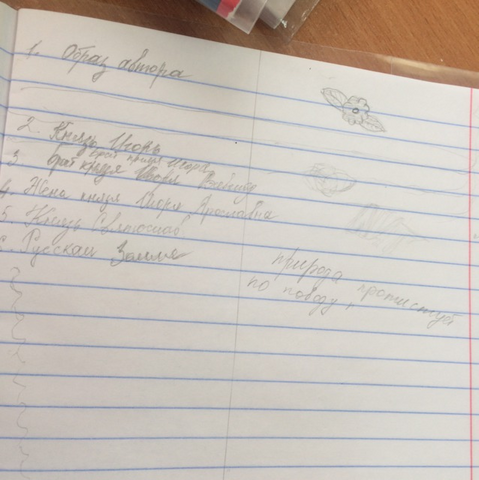 1. Образ автора
2. Князь Игорь
брат князя Игоря
3. брат князя Игоря Всеволод
4. Жена князя Игоря Ярославна
5. Князь Святослав
6. Русская Земля
природа протистуй
по поводу,